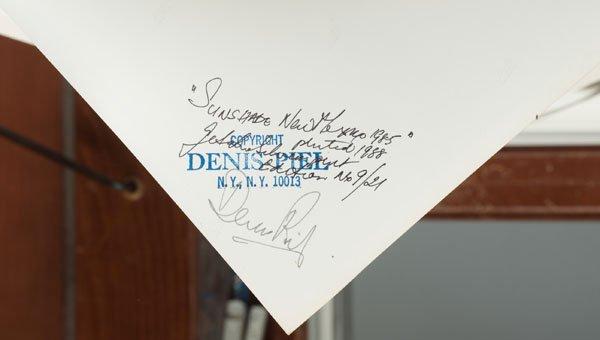 "SUNSHADE New Mexico 1985"
printed 1988
Edition No 9/21
COPYRIGHT
DENIS PIEL
N.Y., N.Y. 10013
Denis Piel